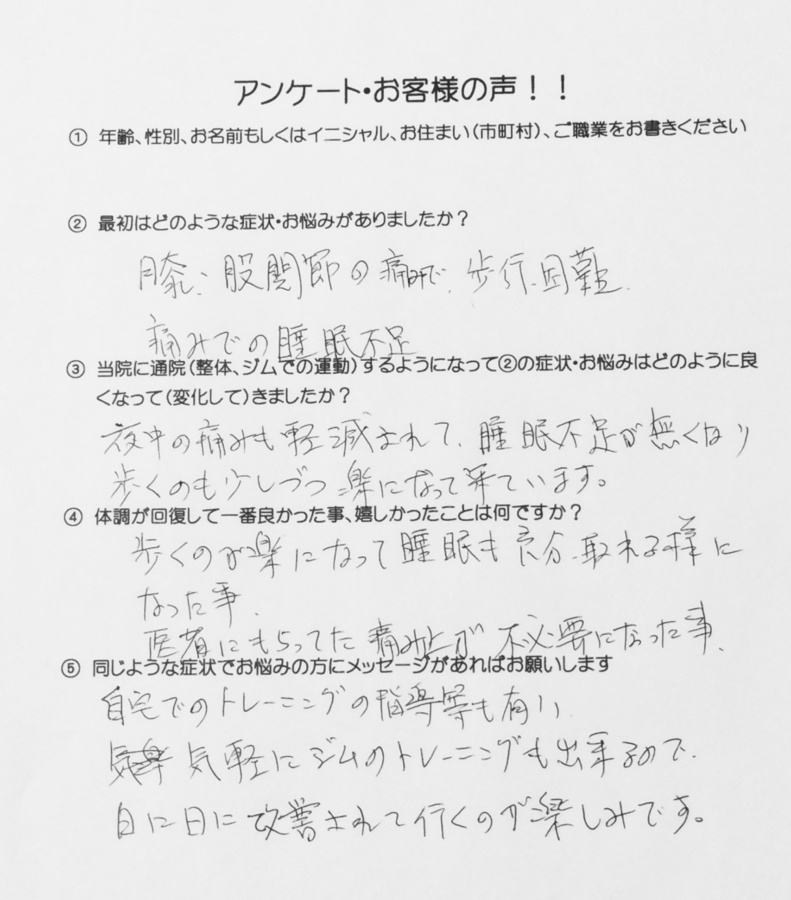 アンケート・お客様の声！！
① 年齢、性別、お名前もしくはイニシャル、お住まい(市町村)、ご職業をお書きください
② 最初はどのような症状・お悩みがありましたか？
膝、股関節の痛みで、歩行困難、
痛みでの睡眠不足
③ 当院に通院(整体、ジムでの運動)するようになって②の症状・お悩みはどのように良
くなって(変化して)きましたか？
夜中の痛みも軽減されて、睡眠不足が無くなり
歩くのも少しづつ楽になって来ています。
④ 体調が回復して一番良かった事、嬉しかったことは何ですか？
歩くのが楽になって睡眠も充分、取れる様に
なった事、
医者にもらってた痛み止が不必要になった事、
⑤ 同じような症状でお悩みの方にメッセージがあればお願いします
自宅でのトレーニングの指導等も有り、
気軽にジムのトレーニングも出来るので、
日に日に改善されて行くのが楽しみです。